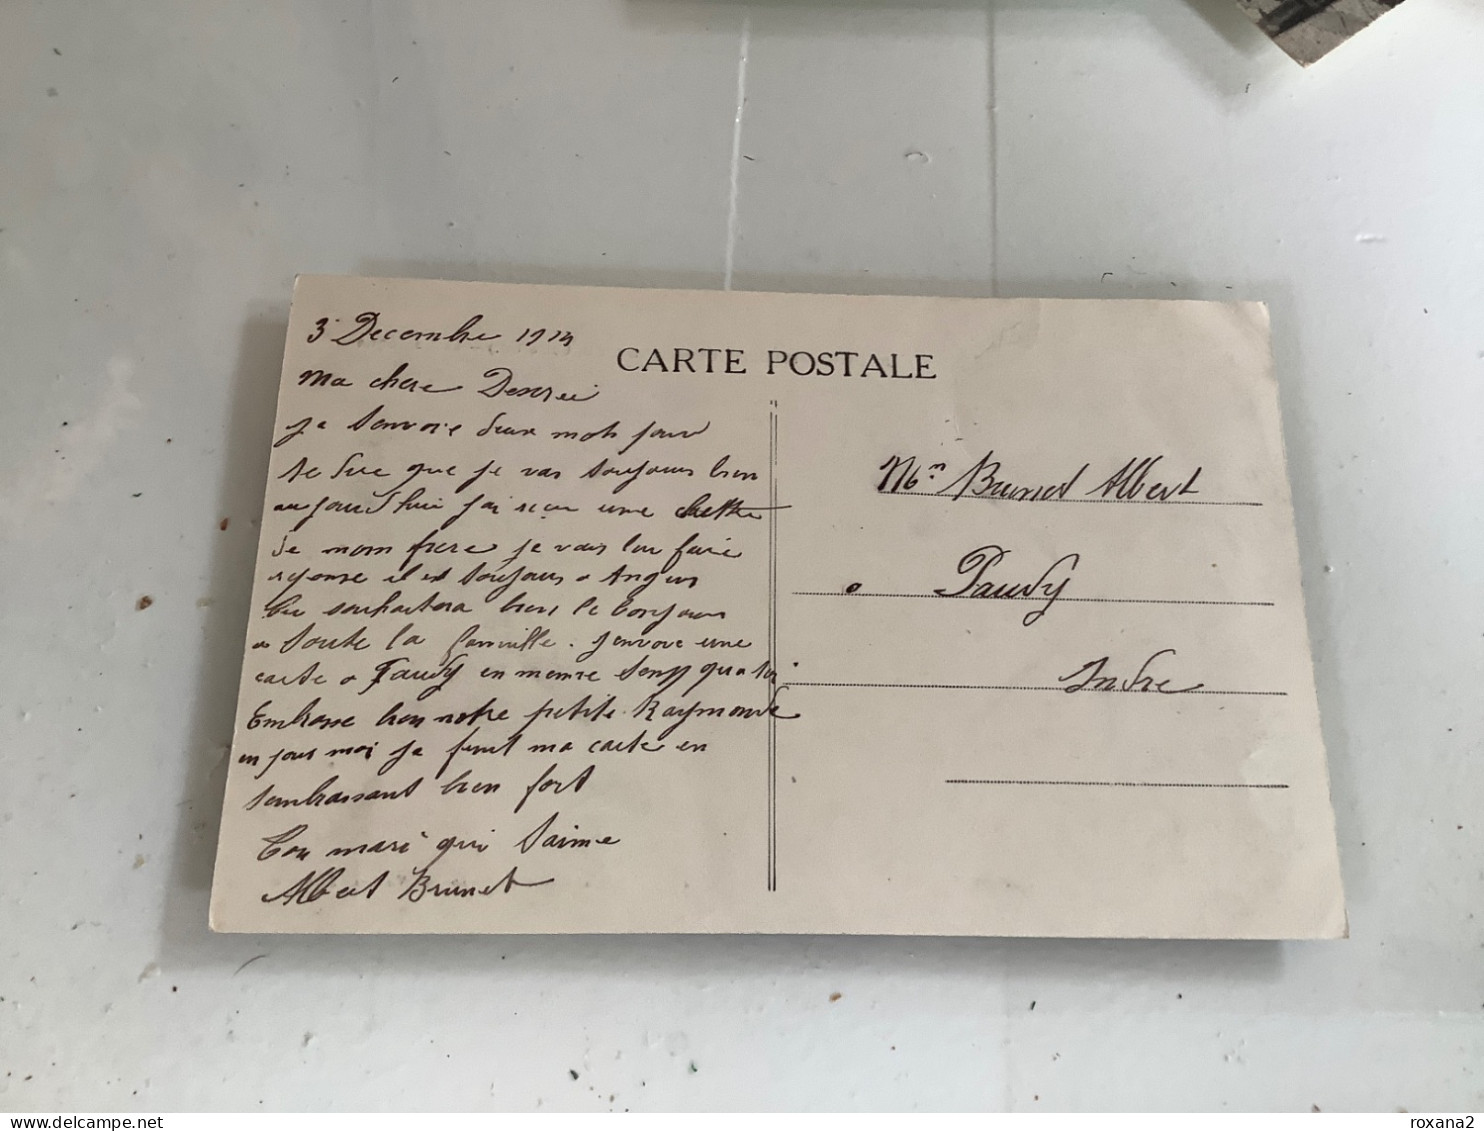 3 Decembre 1914
Ma chere Desirée
je t'envoie deux mots pour
te dire que je vas toujours bien
aujourd'hui j'ai reçu une lettre
de mom frere je vais lui faire
reponse il est toujours a Angers
souhaitera bien le bonjour
a toute la famille. j'envoie une
carte a Paudy en meme temp qu a toi
Embrasse bien notre petite Raymonde
en pour moi je finit ma carte en
t'embrassant bien fort
Ton mari qui t'aime
Albert Brunet
CARTE POSTALE
Brunet Albert
a Paudy
Indre
roxana2